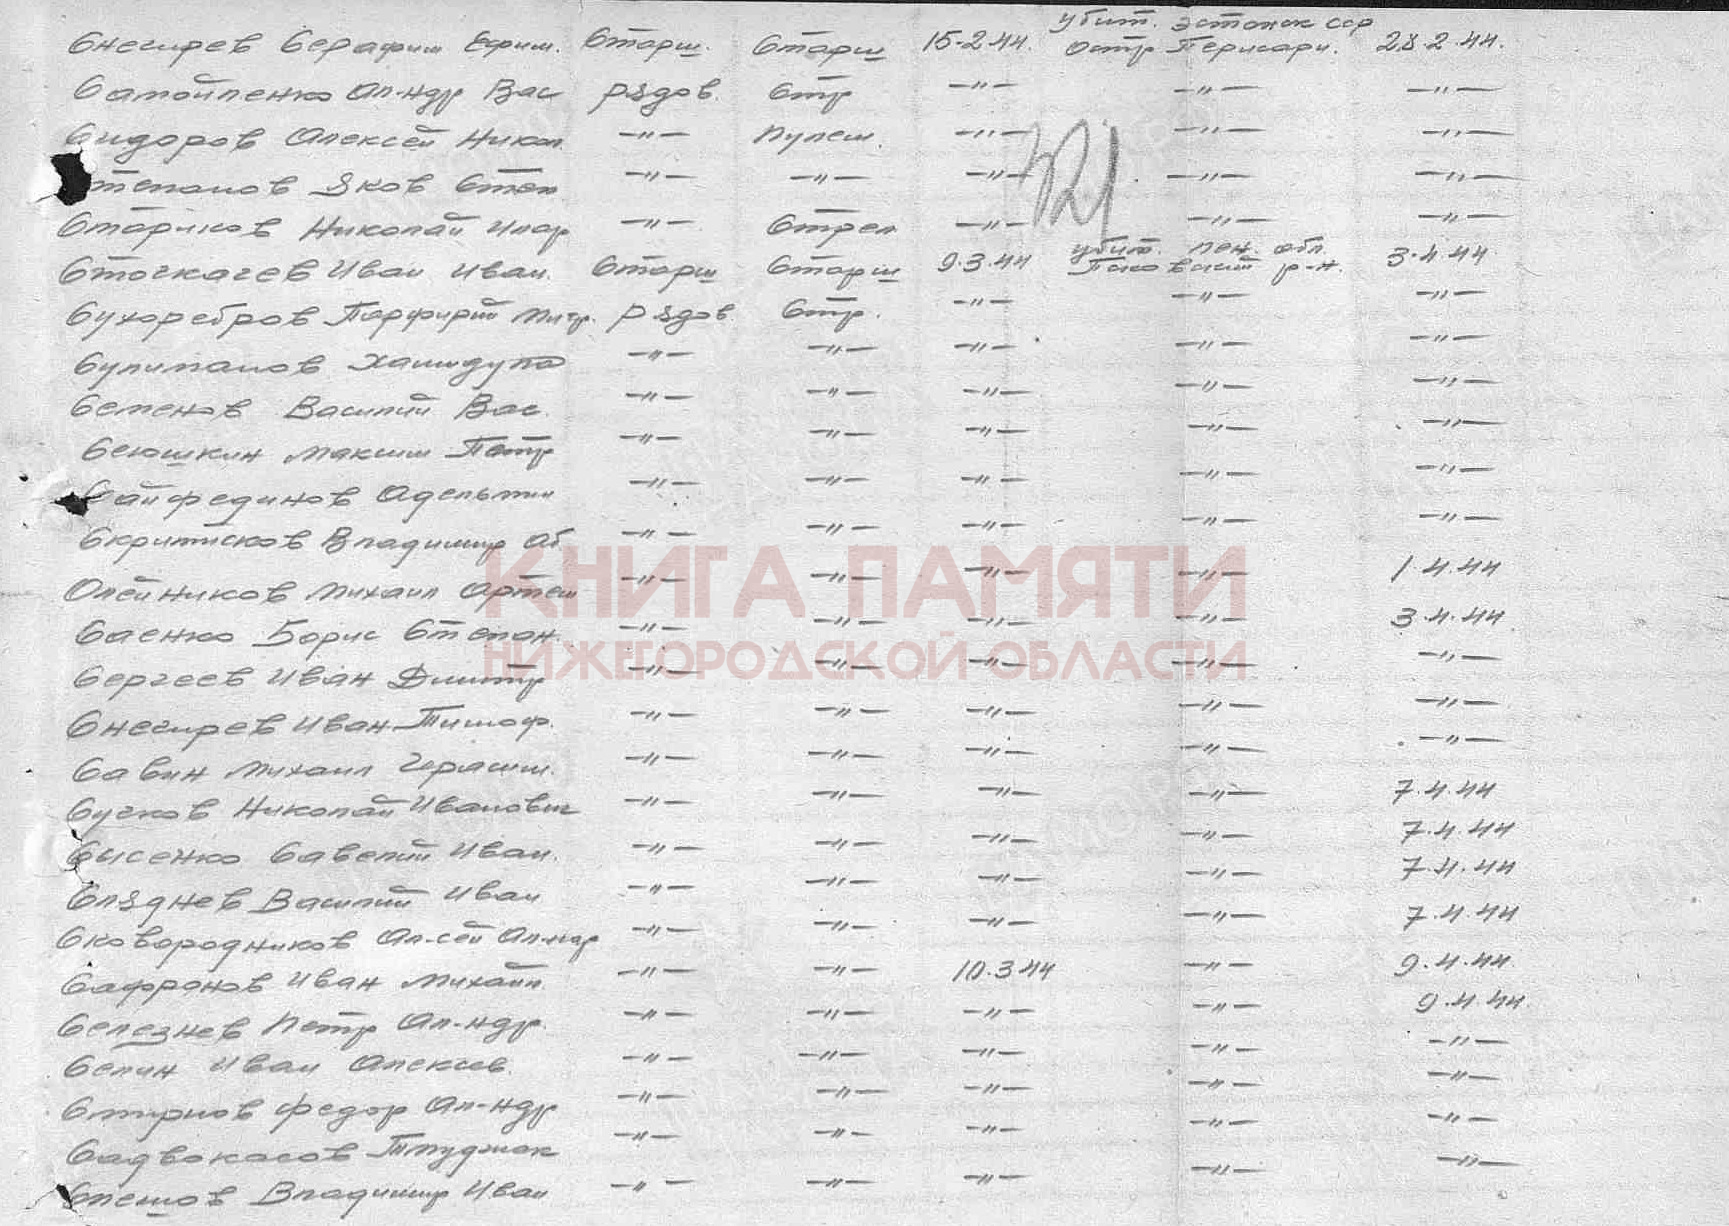 убит. Эстонск ССР
Снегирев Серафим Ефим. Старш. Старш 15.2.44. Остр Перисари. 28.2.44.
Самойленко Ал-ндр Вас рядов. Стр —"— —"— —"—
Сидоров Алексей Никол. —"— Пулем. —"— —"— —"—
Степанов Яков Степ —"— —"— —"— —"— —"—
321
Стариков Николай Илар —"— Стрел —"— —"— —"—
убит. Лен. обл.
Иван Иван. Старш Старш 9.3.44 Псковский р-н. 3.4.44
Сухоребров Парфирий Митр. рядов. Стр. —"— —"— —"—
Сулиманов Хамидула —"— —"— —"— —"— —"—
Семенов Василий Вас. —"— —"— —"— —"— —"—
Сеюшкин Максим Петр —"— —"— —"— —"— —"—
Сайфединов —"— —"— —"— —"— —"—
Владимир —"— —"— —"— —"— —"—
КНИГА ПАМЯТИ
Олейников Михаил Артем —"— —"— —"— —"— 1.4.44
Саенко Борис Степан. —"— —"— —"— —"— 3.4.44
НИЖЕГОРОДСКОЙ ОБЛАСТИ
Сергеев Иван Дмитр —"— —"— —"— —"— —"—
Снегирев Иван Тимоф. —"— —"— —"— —"— —"—
Савин Михаил Герасим. —"— —"— —"— —"— —"—
Сучков Николай Иванович —"— —"— —"— —"— 7.4.44
Сысенко Савелий Иван. —"— —"— —"— —"— 7.4.44
Сляднев Василий Иван —"— —"— —"— —"— 7.4.44
Сковородников Ал-сей Ал-ндр —"— —"— —"— —"— 7.4.44
Сафронов Иван Михайл. —"— —"— 10.3.44 —"— 9.4.44
Селезнев Петр Ал-ндр. —"— —"— —"— —"— 9.4.44
Селин Иван Алексеев. —"— —"— —"— —"— —"—
Смирнов Федор Ал-ндр —"— —"— —"— —"— —"—
Садвокасов —"— —"— —"— —"— —"—
Владимир Иван —"— —"— —"— —"— —"—